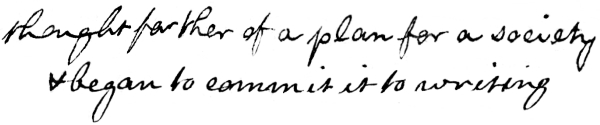 thought farther of a plan for a society
& began to commit it to writing